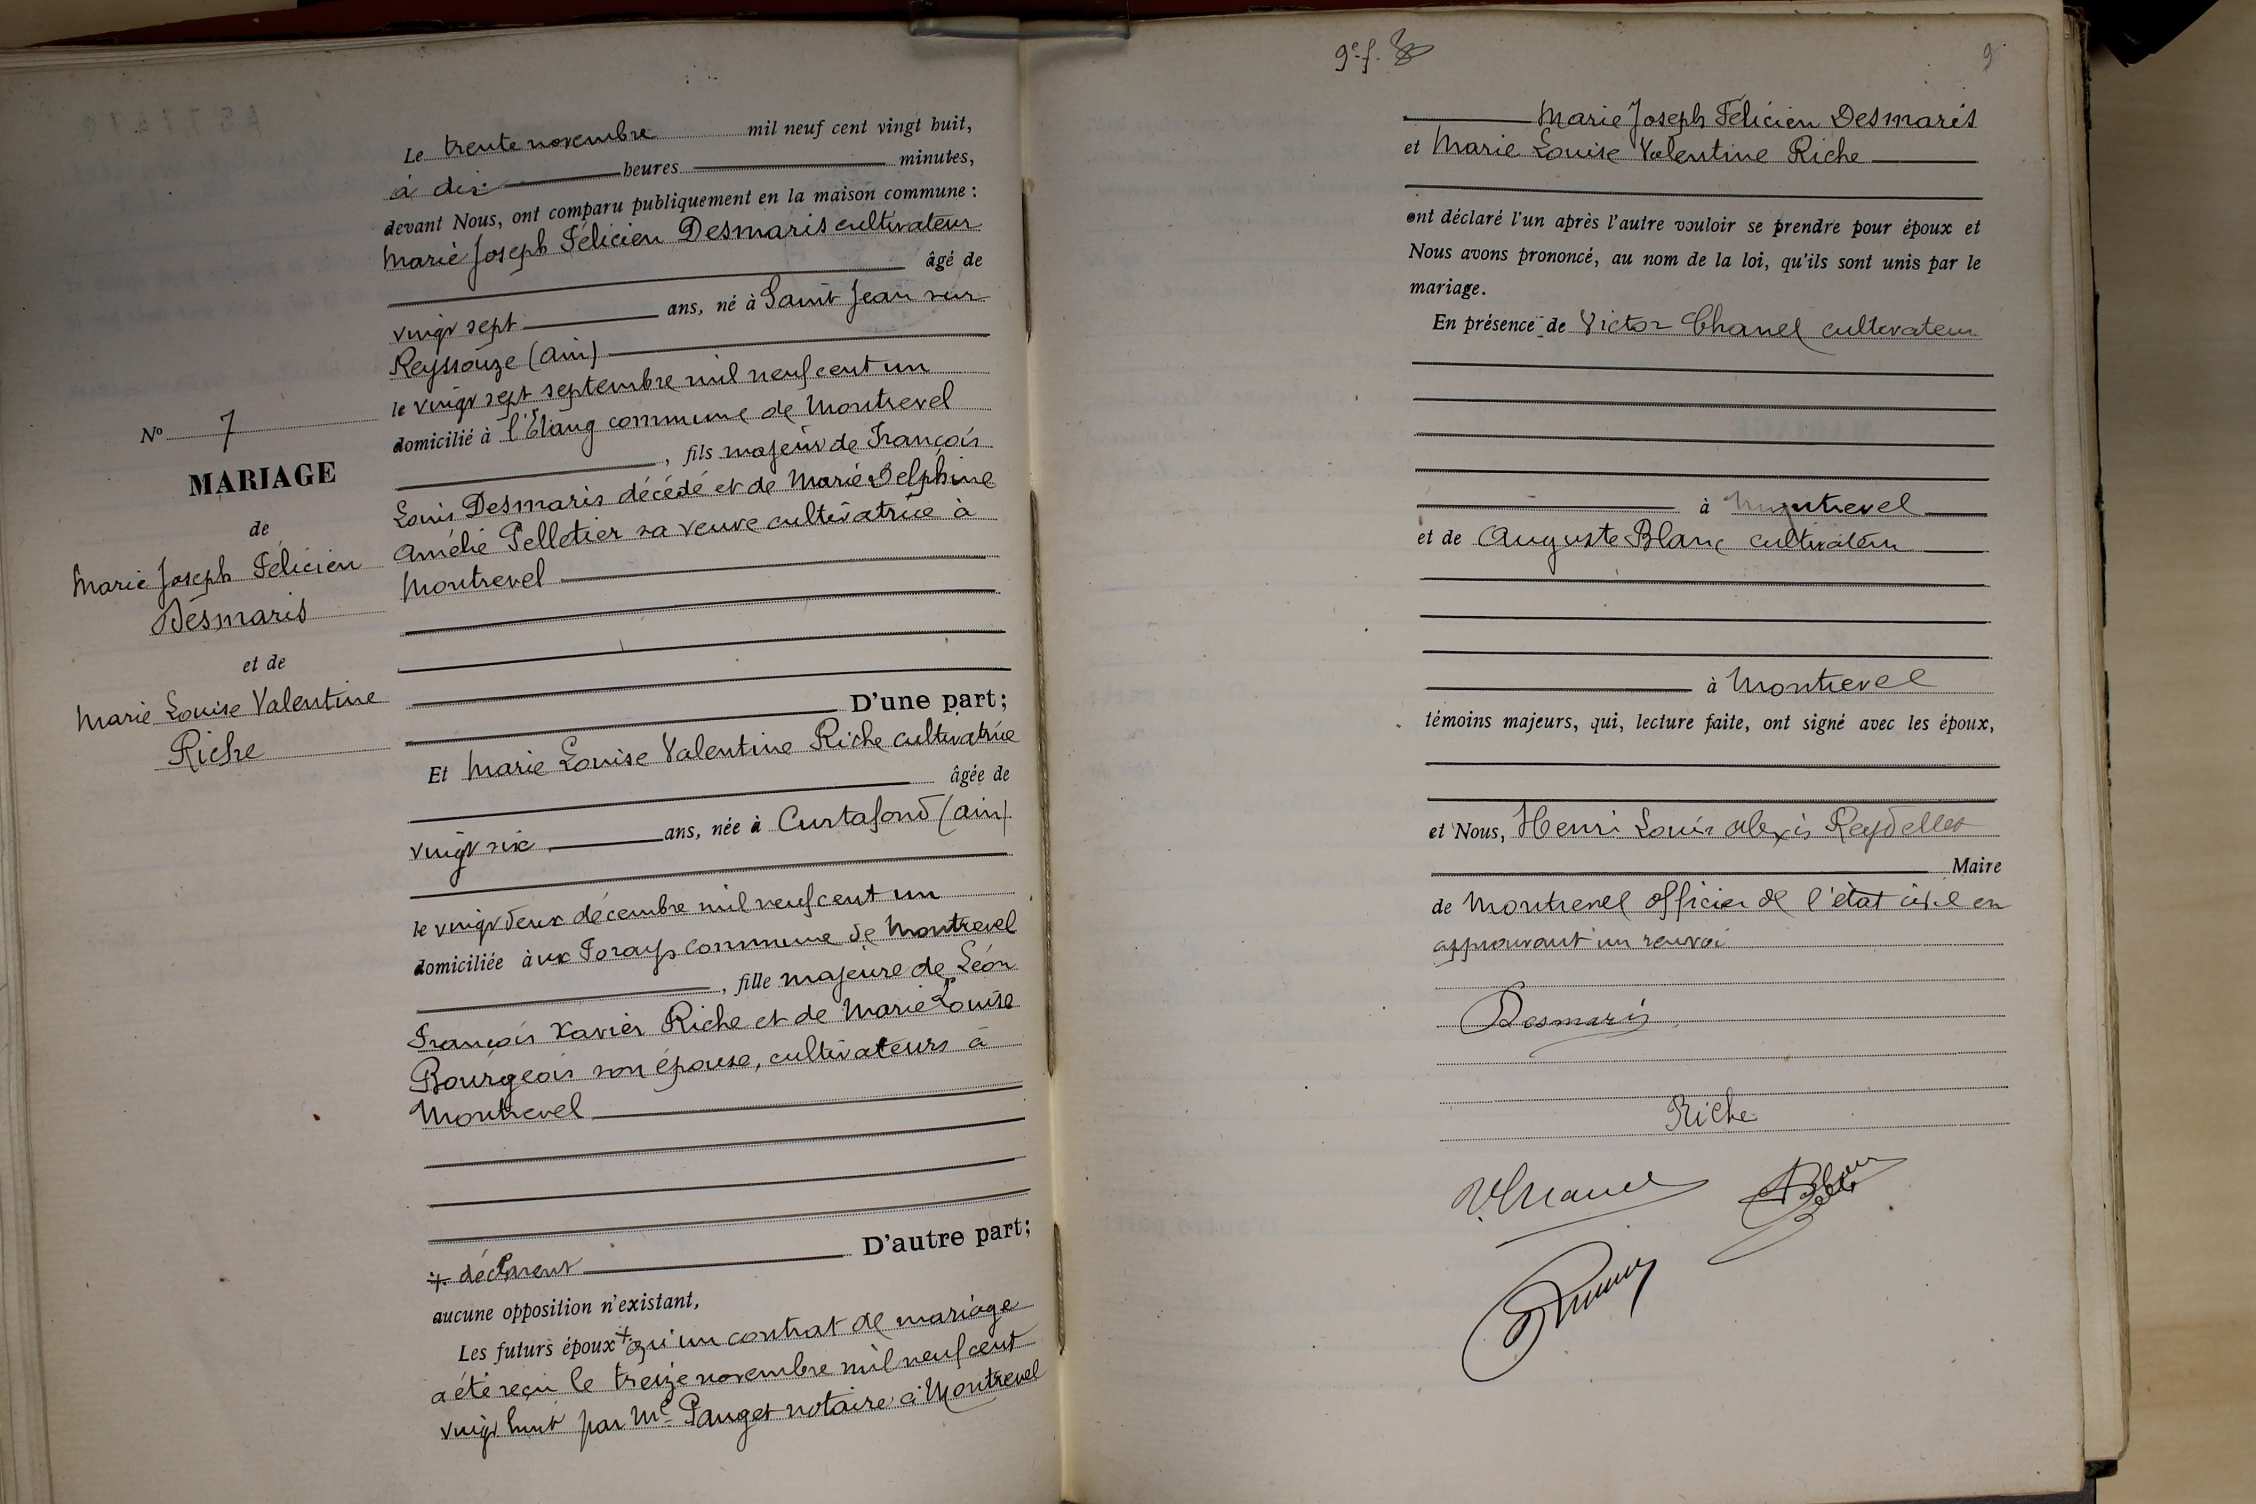 N° 7
MARIAGE
de
Marie Joseph Félicien
Desmaris
et de
Marie Louise Valentine
Riche
Le trente novembre mil neuf cent vingt huit,
à dix heures minutes,
devant Nous, ont comparu publiquement en la maison commune :
Marie Joseph Félicien Desmaris cultivateur
âgé de
vingt sept ans, né à Saint Jean sur
Reyssouze (Ain)
le vingt sept septembre mil neuf cent un
domicilié à l'Etang commune de Montrevel
, fils majeur de François
Louis Desmaris décédé et de Marie Delphine
Amélie Pelletier sa veuve cultivatrice à
Montrevel
D'une part;
Et Marie Louise Valentine Riche cultivatrice
âgée de
vingt six ans, née à Curtafond (Ain)
le vingt deux décembre mil neuf cent un
domiciliée aux Forays commune de Montrevel
, fille majeure de Léon
François Xavier Riche et de Marie Louise
Bourgeois son épouse, cultivateurs à
Montrevel
D'autre part;
+ déclarent
aucune opposition n'existant,
Les futurs époux + qu'un contrat de mariage
a été reçu le treize novembre mil neuf cent
vingt huit par Me Pauget notaire à Montrevel
9e f.
9
Marie Joseph Félicien Desmaris
et Marie Louise Valentine Riche
ont déclaré l'un après l'autre vouloir se prendre pour époux et
Nous avons prononcé, au nom de la loi, qu'ils sont unis par le
mariage.
En présence de Victor Chanel cultivateur
à Montrevel
et de Auguste Blanc cultivateur
à Montrevel
témoins majeurs, qui, lecture faite, ont signé avec les époux,
et Nous, Henri Louis Alexis Reydellet
Maire
de Montrevel officier de l'état civil en
approuvant un renvoi
Desmaris
Riche
V. Chanel